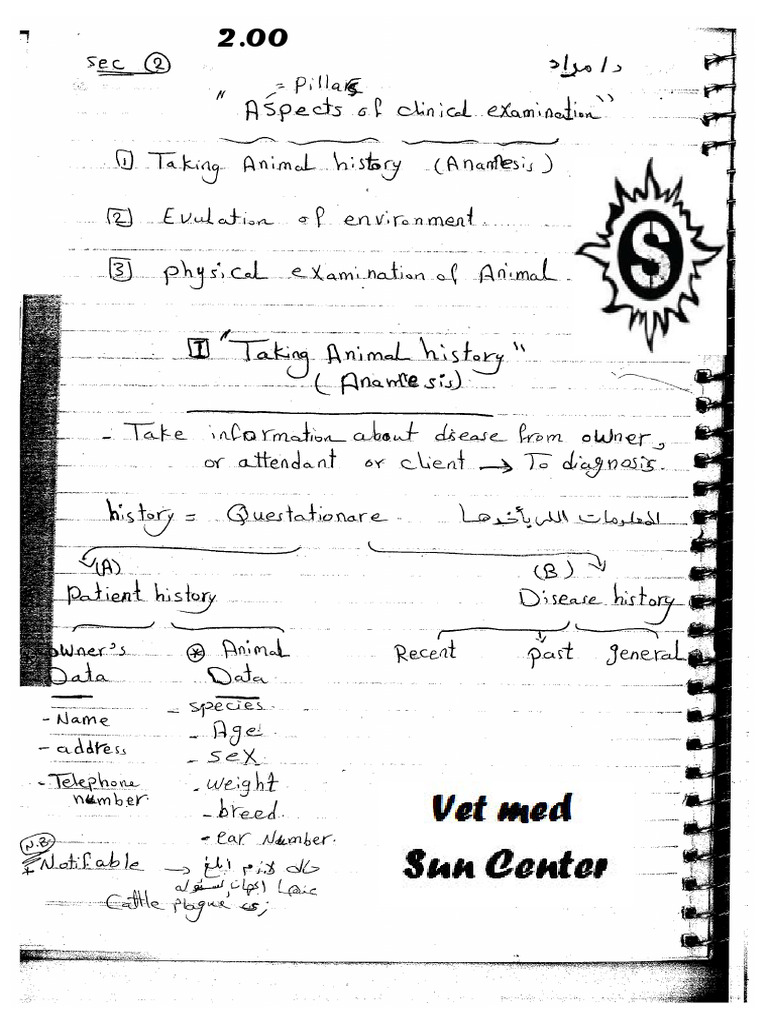 2.00
Sec ②
د/مراد
= Pillars
"Aspects of clinical examination"
1 Taking Animal history (Anamesis)
2 Evulation of environment.
3 physical examination of Animal
S
I "Taking Animal history"
(Anamesis)
- Take information about disease from owner,
or attendant or client → To diagnosis.
history = Questationare المعلومات اللى بأخدها
(A) (B)
Patient history Disease history
owner's Data
- Name
- address
- Telephone number.
* Animal Data
- species.
- Age
- sex
- weight
- breed.
- ear Number.
Recent past general
Vet med
Sun Center
N.B
Notifiable → حاله لازم ابلغ
عنها
زى Cattle plague